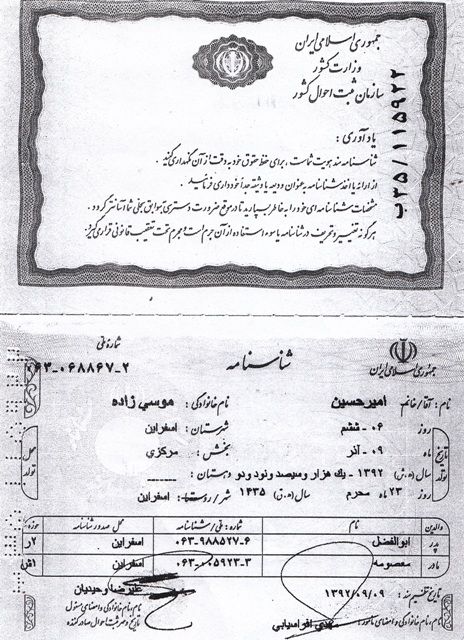 جمهوری اسلامی ایران
وزارت کشور
سازمان ثبت احوال کشور
ب۳۵/۱۱۵۹۲۲
یادآوری :
شناسنامه سند هویت شماست ، برای حفظ حقوق خود به دقت از آن نگهداری کنید .
از ارائه یا اخذ شناسنامه به عنوان ودیعه یا وثیقه جداً خودداری فرمائید .
مشخصات شناسنامه ای خود را به خاطر بسپارید تا در موقع ضرورت دسترسی به سوابق سجلی شما آسانتر گردد .
هرگونه تغییر و تحریف در شناسنامه یا سوء استفاده از آن جرم است و مجرم تحت تعقیب قانونی قرار می گیرد .
جمهوری اسلامی ایران
شناسنامه
شماره ملی
۰۶۳-۰۶۸۸۶۷-۲
نام : آقا/خانم امیرحسین نام خانوادگی : موسی زاده
تاریخ تولد
روز ۰۶ - ششم
ماه ۰۹ - آذر
سال (ه.ش) ۱۳۹۲ - یك هزار و سیصد و نود و دو
روز ۲۳ ماه محرم سال (ه.ق) ۱۴۳۵
محل تولد
شهرستان : اسفراین
بخش : مرکزی
دهستان : ------
شهر/روستا : اسفراین
والدین نام شماره : ملی/شناسنامه محل صدور شناسنامه حوزه
پدر ابوالفضل ۰۶۳-۹۸۸۵۲۷-۶ اسفراین ۲ر
مادر معصومه اسفراین اش
تاریخ تنظیم سند : ۱۳۹۲/۰۹/۰۹
نام، نام خانوادگی و امضای مأمور : مهدی افراسیابی
علیرضا وحیدیان
نام، نام خانوادگی و امضای مسئول
و مهر ثبت احوال صادرکننده